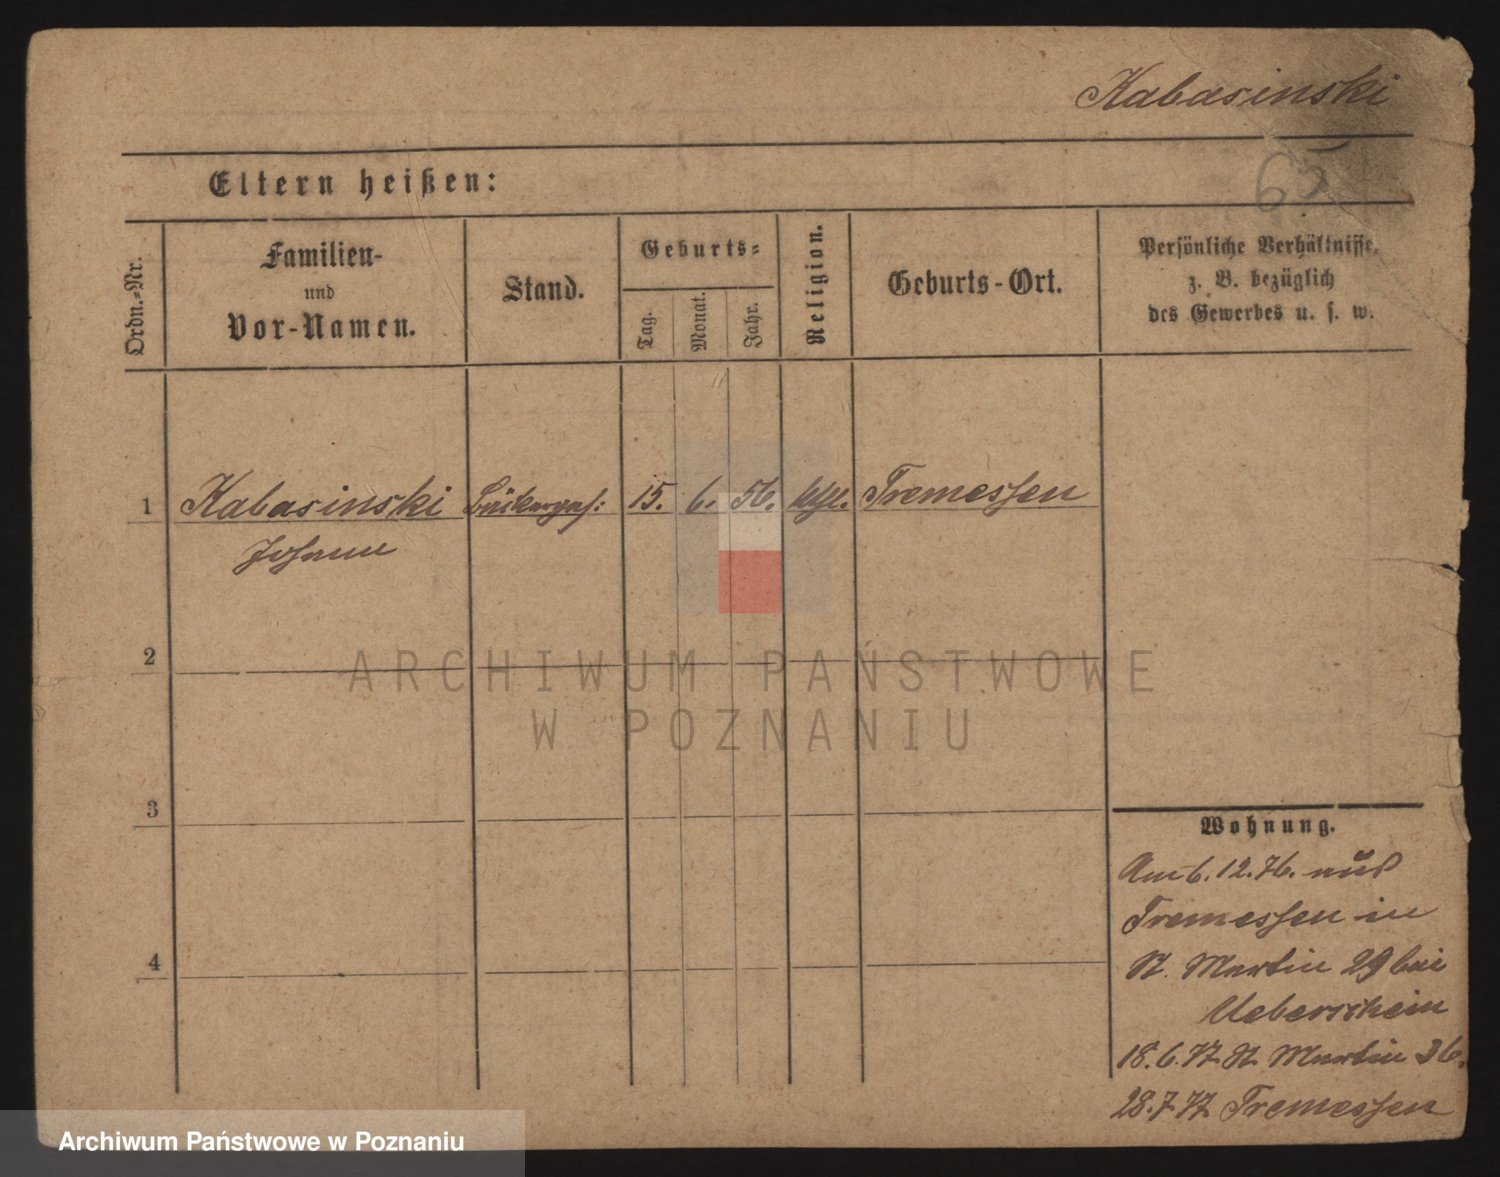 Kabasinski
65
Eltern heißen:
Ordn.-Nr.
Familien-
und
Vor-Namen.
Stand.
Geburts-
Tag.
Monat.
Jahr.
Religion.
Geburts-Ort.
Persönliche Verhältnisse,
z. B. bezüglich
des Gewerbes u. s. w.
1 Kabasinski Bäckerges: 15. 6. 56. kthl. Tremessen
Johann
2
3
4
Wohnung.
Am 6. 12. 76. aus
Tremessen in
St. Martin 29 bei
Ueberschein
18. 6. 77 St. Martin 36.
28. 7. 77 Tremessen
ARCHIWUM PAŃSTWOWE
W POZNANIU
Archiwum Państwowe w Poznaniu